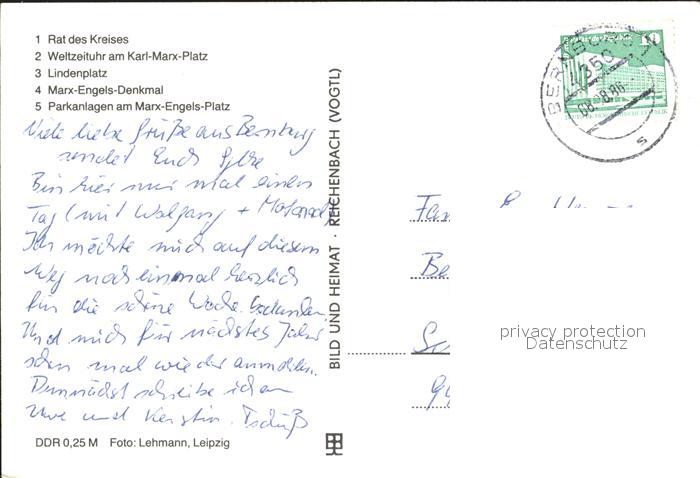 1 Rat des Kreises
2 Weltzeituhr am Karl-Marx-Platz
3 Lindenplatz
4 Marx-Engels-Denkmal
5 Parkanlagen am Marx-Engels-Platz
Viele liebe Grüße aus Bernburg
sendet Euch Sylke
Bin hier nur mal einen
Tag (mit Wolfgang + Motorrad)
Ich möchte mich auf diesem
Weg noch einmal herzlich
für die schöne Woche bedanken.
Und mich für nächstes Jahr
schon mal wieder anmelden.
Demnächst schreibe ich an
Uwe und Kerstin. Tschüß
DDR 0,25 M Foto: Lehmann, Leipzig
BILD UND HEIMAT · REICHENBACH (VOGTL)
BERNBURG 1
4350
s
10
Fam.
Be
privacy protection
Datenschutz